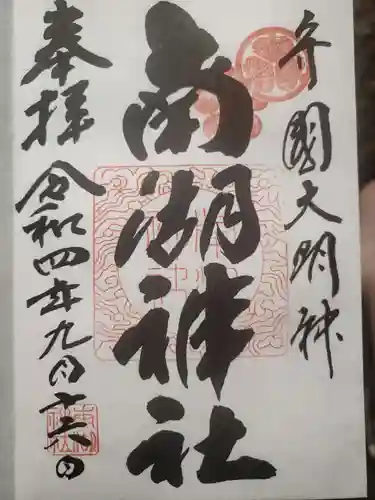 守國大明神
南湖神社
奉拝
令和四年九月十六日